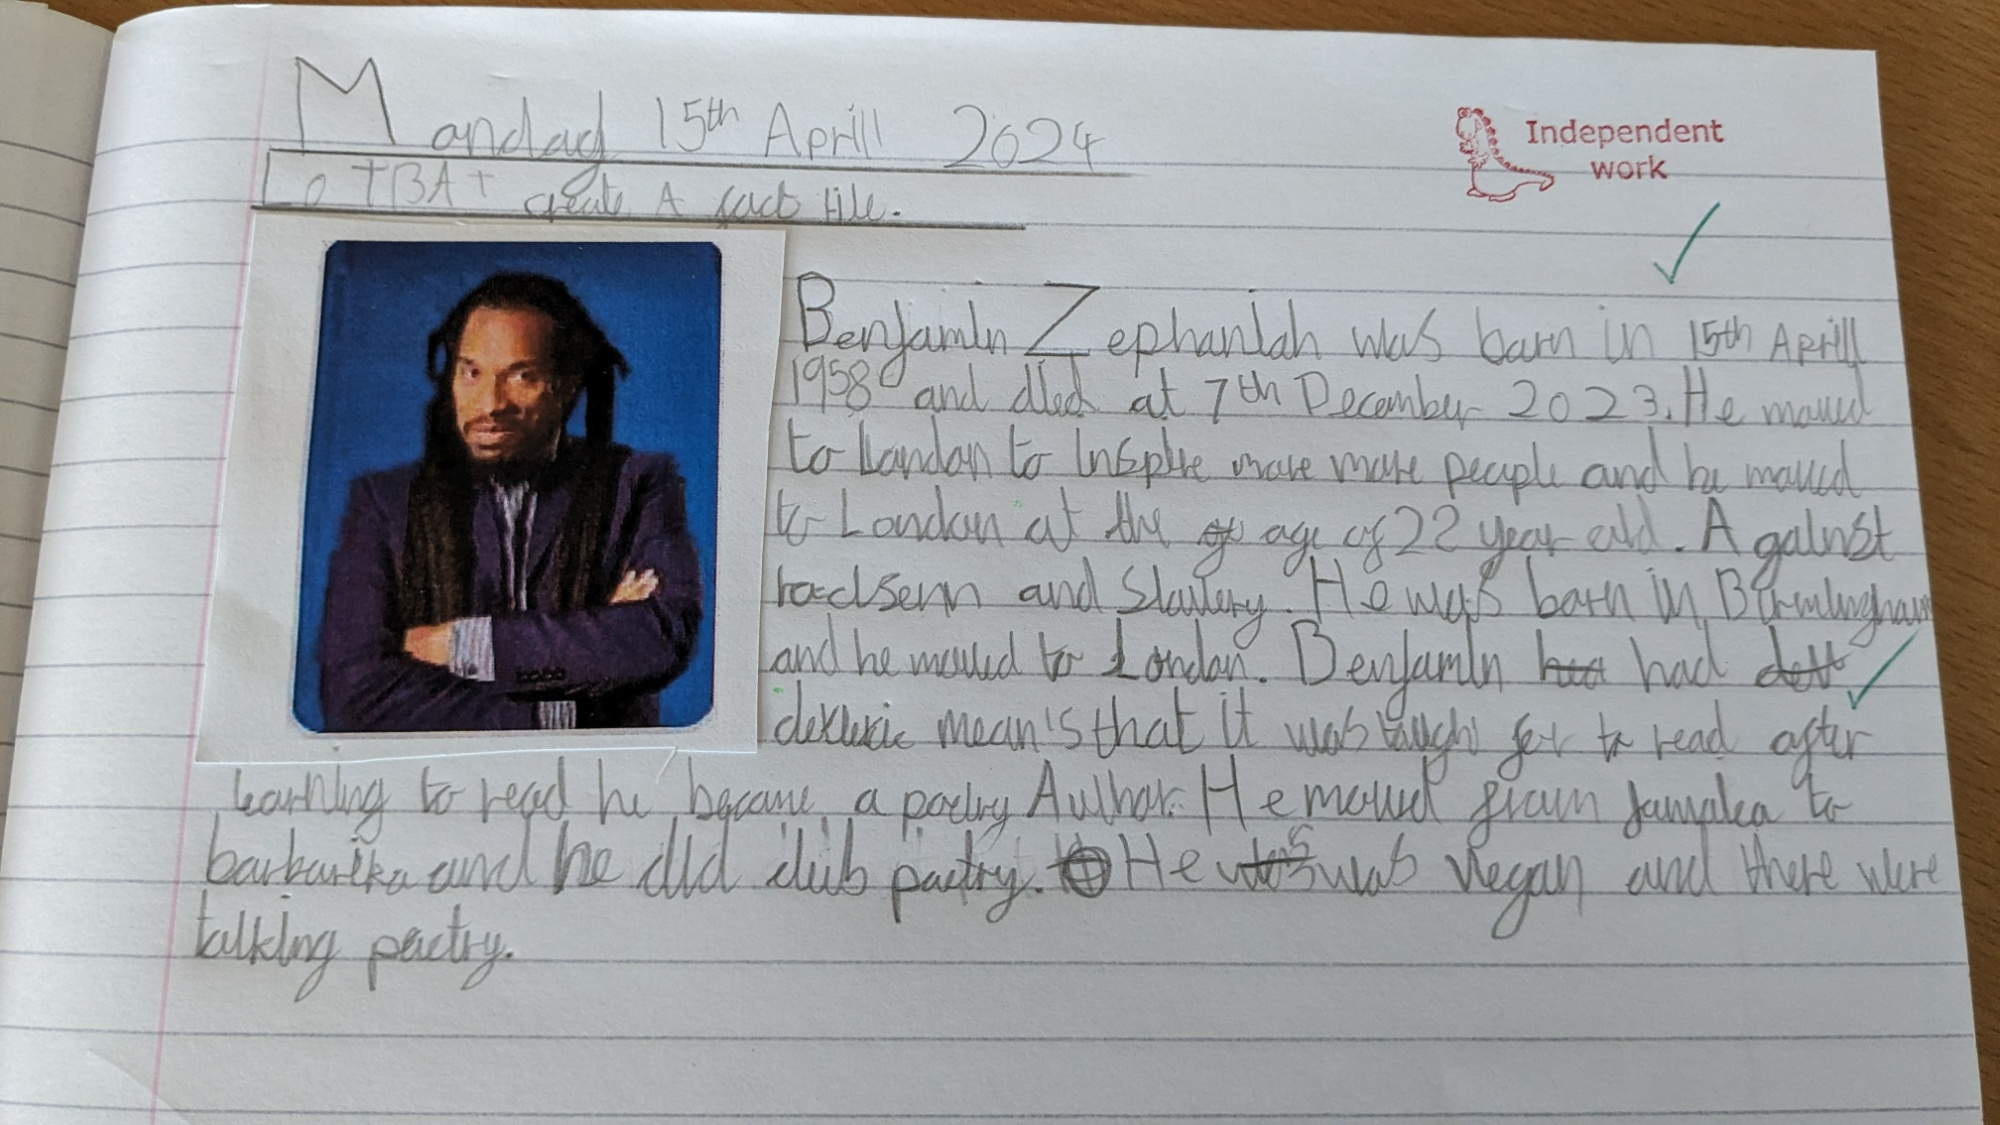 Monday 15th Aprill 2024
Independent
work
Lo TBAT create A fact file.
Benjamin Zephaniah was born in 15th Aprill
1958 and died at 7th December 2023. He moved
to London to inspire more more people and he moved
to London at the of age of 22 year old. Against
racisem and Slavery. He was born in Birmingham
and he moved to London. Benjamin had
mean's that it was taught for to read after
learning to read he became a poetry Author. He moved from Jamaica to
and he did dub poetry. He was was vegan and there were
talking poetry.